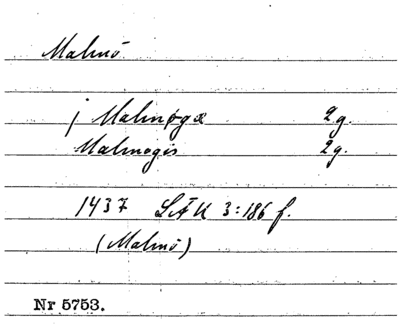 Malmö
j Malmøgæ 2 g.
Malmogis 2 g.
1437 LÄU 3:186 f.
(Malmö)
Nr 5753.